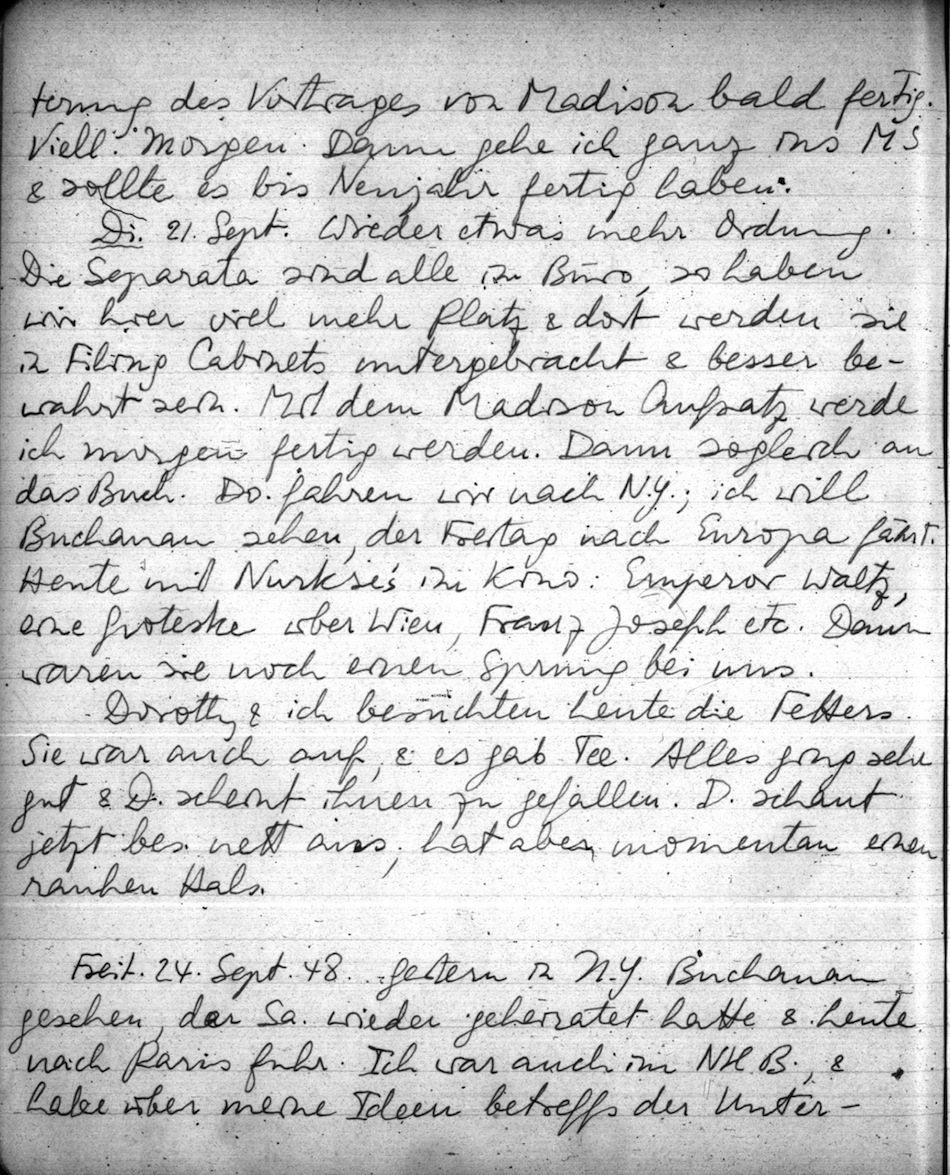 terung des Vortrages von Madison bald fertig.
Viell. Morgen. Dann gehe ich ganz ins MS
& sollte es bis Neujahr fertig haben.
Di. 21. Sept. Wieder etwas mehr Ordnung.
Die Separata sind alle in Büro, so haben
wir hier viel mehr Platz & dort werden sie
in Filing Cabinets untergebracht & besser be-
wahrt sein. Mit dem Madison Aufsatz werde
ich morgen fertig werden. Dann sogleich an
das Buch. Do. fahren wir nach N.Y.; ich will
Buchanan sehen, der Freitag nach Europa fährt.
Heute mit Nurkse's im Kino: Emperor Waltz,
eine Groteske über Wien, Franz Joseph etc. Dann
waren sie noch einen Sprung bei uns.
Dorothy & ich besuchten heute die Fetters.
Sie war auch auf, & es gab Tee. Alles ging sehr
gut & D. scheint ihnen zu gefallen. D. schaut
jetzt bes. nett aus, hat aber momentan einen
rauhen Hals.
Freit. 24. Sept. 48. Gestern in N.Y. Buchanan
gesehen, der Sa. wieder geheiratet hatte & heute
nach Paris fuhr. Ich war auch im NHB., &
habe über meine Ideen betreffs der Unter-